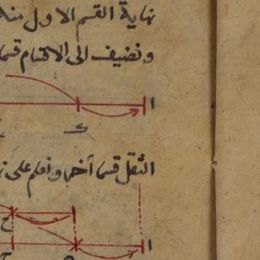 نهاية القسم الاول منه
ونضيف الى الاقسام قسما
ا
الثقل قسما آخر ونعلم على
ح
ا